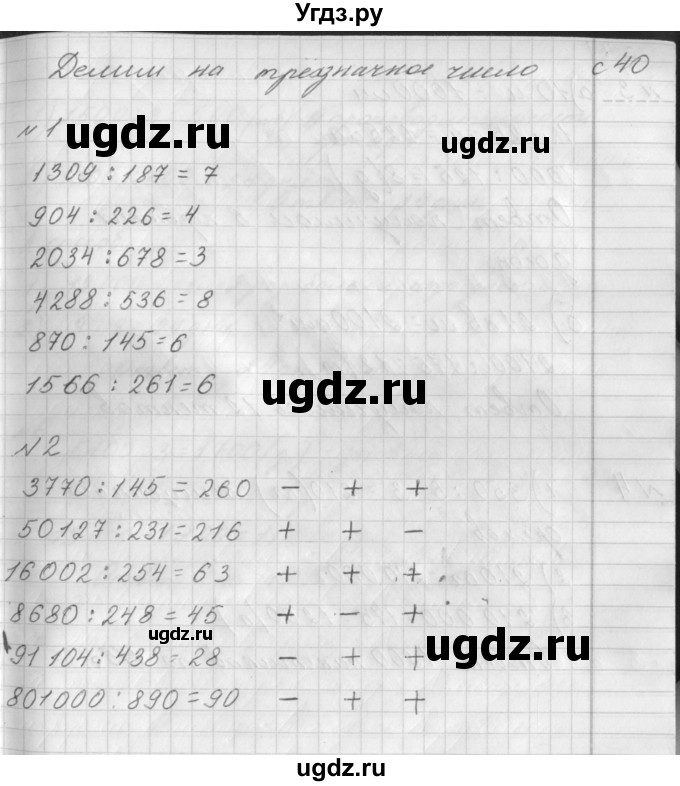 Угдз.ру
Делим на трехзначное число с 40
№1
ugdz.ru
ugdz.ru
1309 : 187 = 7
904 : 226 = 4
2034 : 678 = 3
4288 : 536 = 8
870 : 145 = 6
1566 : 261 = 6
ugdz.ru
№2
3770 : 145 = 260 - + +
50127 : 231 = 216 + + -
16002 : 254 = 63 + + +
8680 : 248 = 45 + - +
ugdz.ru
ugdz.ru
91104 : 438 = 28 - + +
801000 : 890 = 90 - + +
ugdz.ru